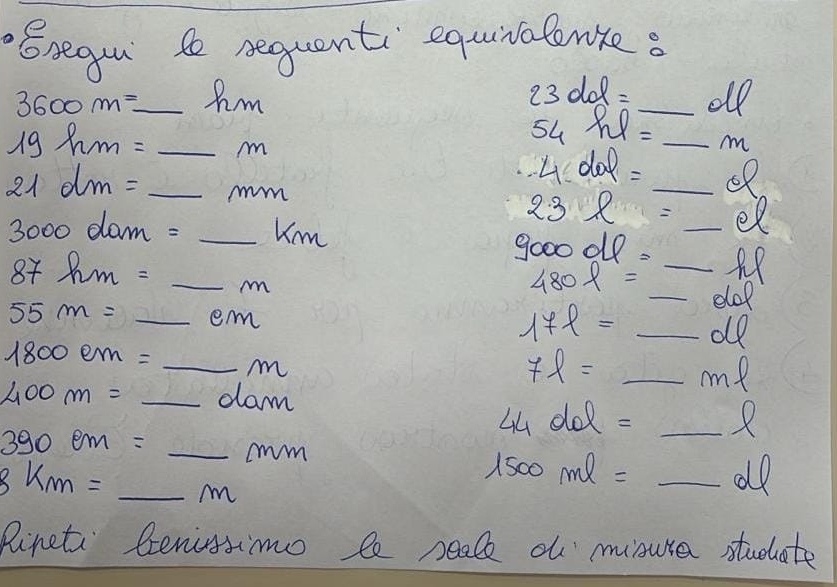 • Esegui le seguenti equivalenze:
3600 m = ___ hm
19 hm = ___ m
21 dm = ___ mm
3000 dam = ___ Km
87 hm = ___ m
55 m = ___ cm
1800 cm = ___ m
400 m = ___ dam
390 cm = ___ mm
8 Km = ___ m
23 dal = ___ dl
54 hl = ___ m
4 dal = ___ cl
23 l = ___ cl
9000 dl = ___ hl
480 l = ___ dal
17 l = ___ dl
7 l = ___ ml
44 dal = ___ l
1500 ml = ___ dl
Ripeti benissimo le scale di misura studiate